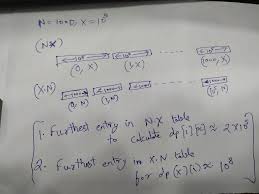 N = 1000, X = 10^8
(NX)
10^8 10^8 10^8
(0, X) (1, X) (1000, X)
(X.N) 1000 1000 1000
(0, N) (1, N) (10^8, N)
1. Furthest entry in N.X table
to calculate dp[i][x] ≈ 2×10^8
2. Furthest entry in X.N table
for dp[x][i] ≈ 10^8